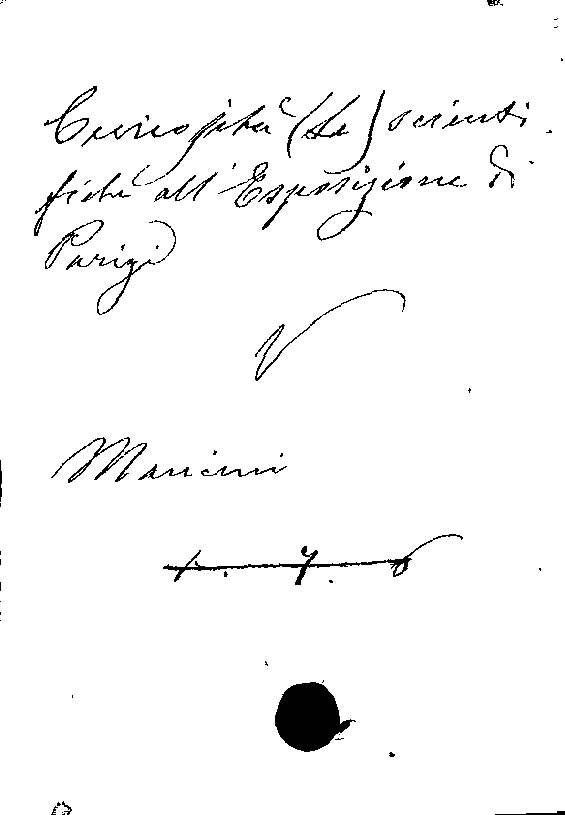 Curiosità (Le) scienti
fiche all' Esposizione di
Parigi
V
Mancini
1. 7. 6